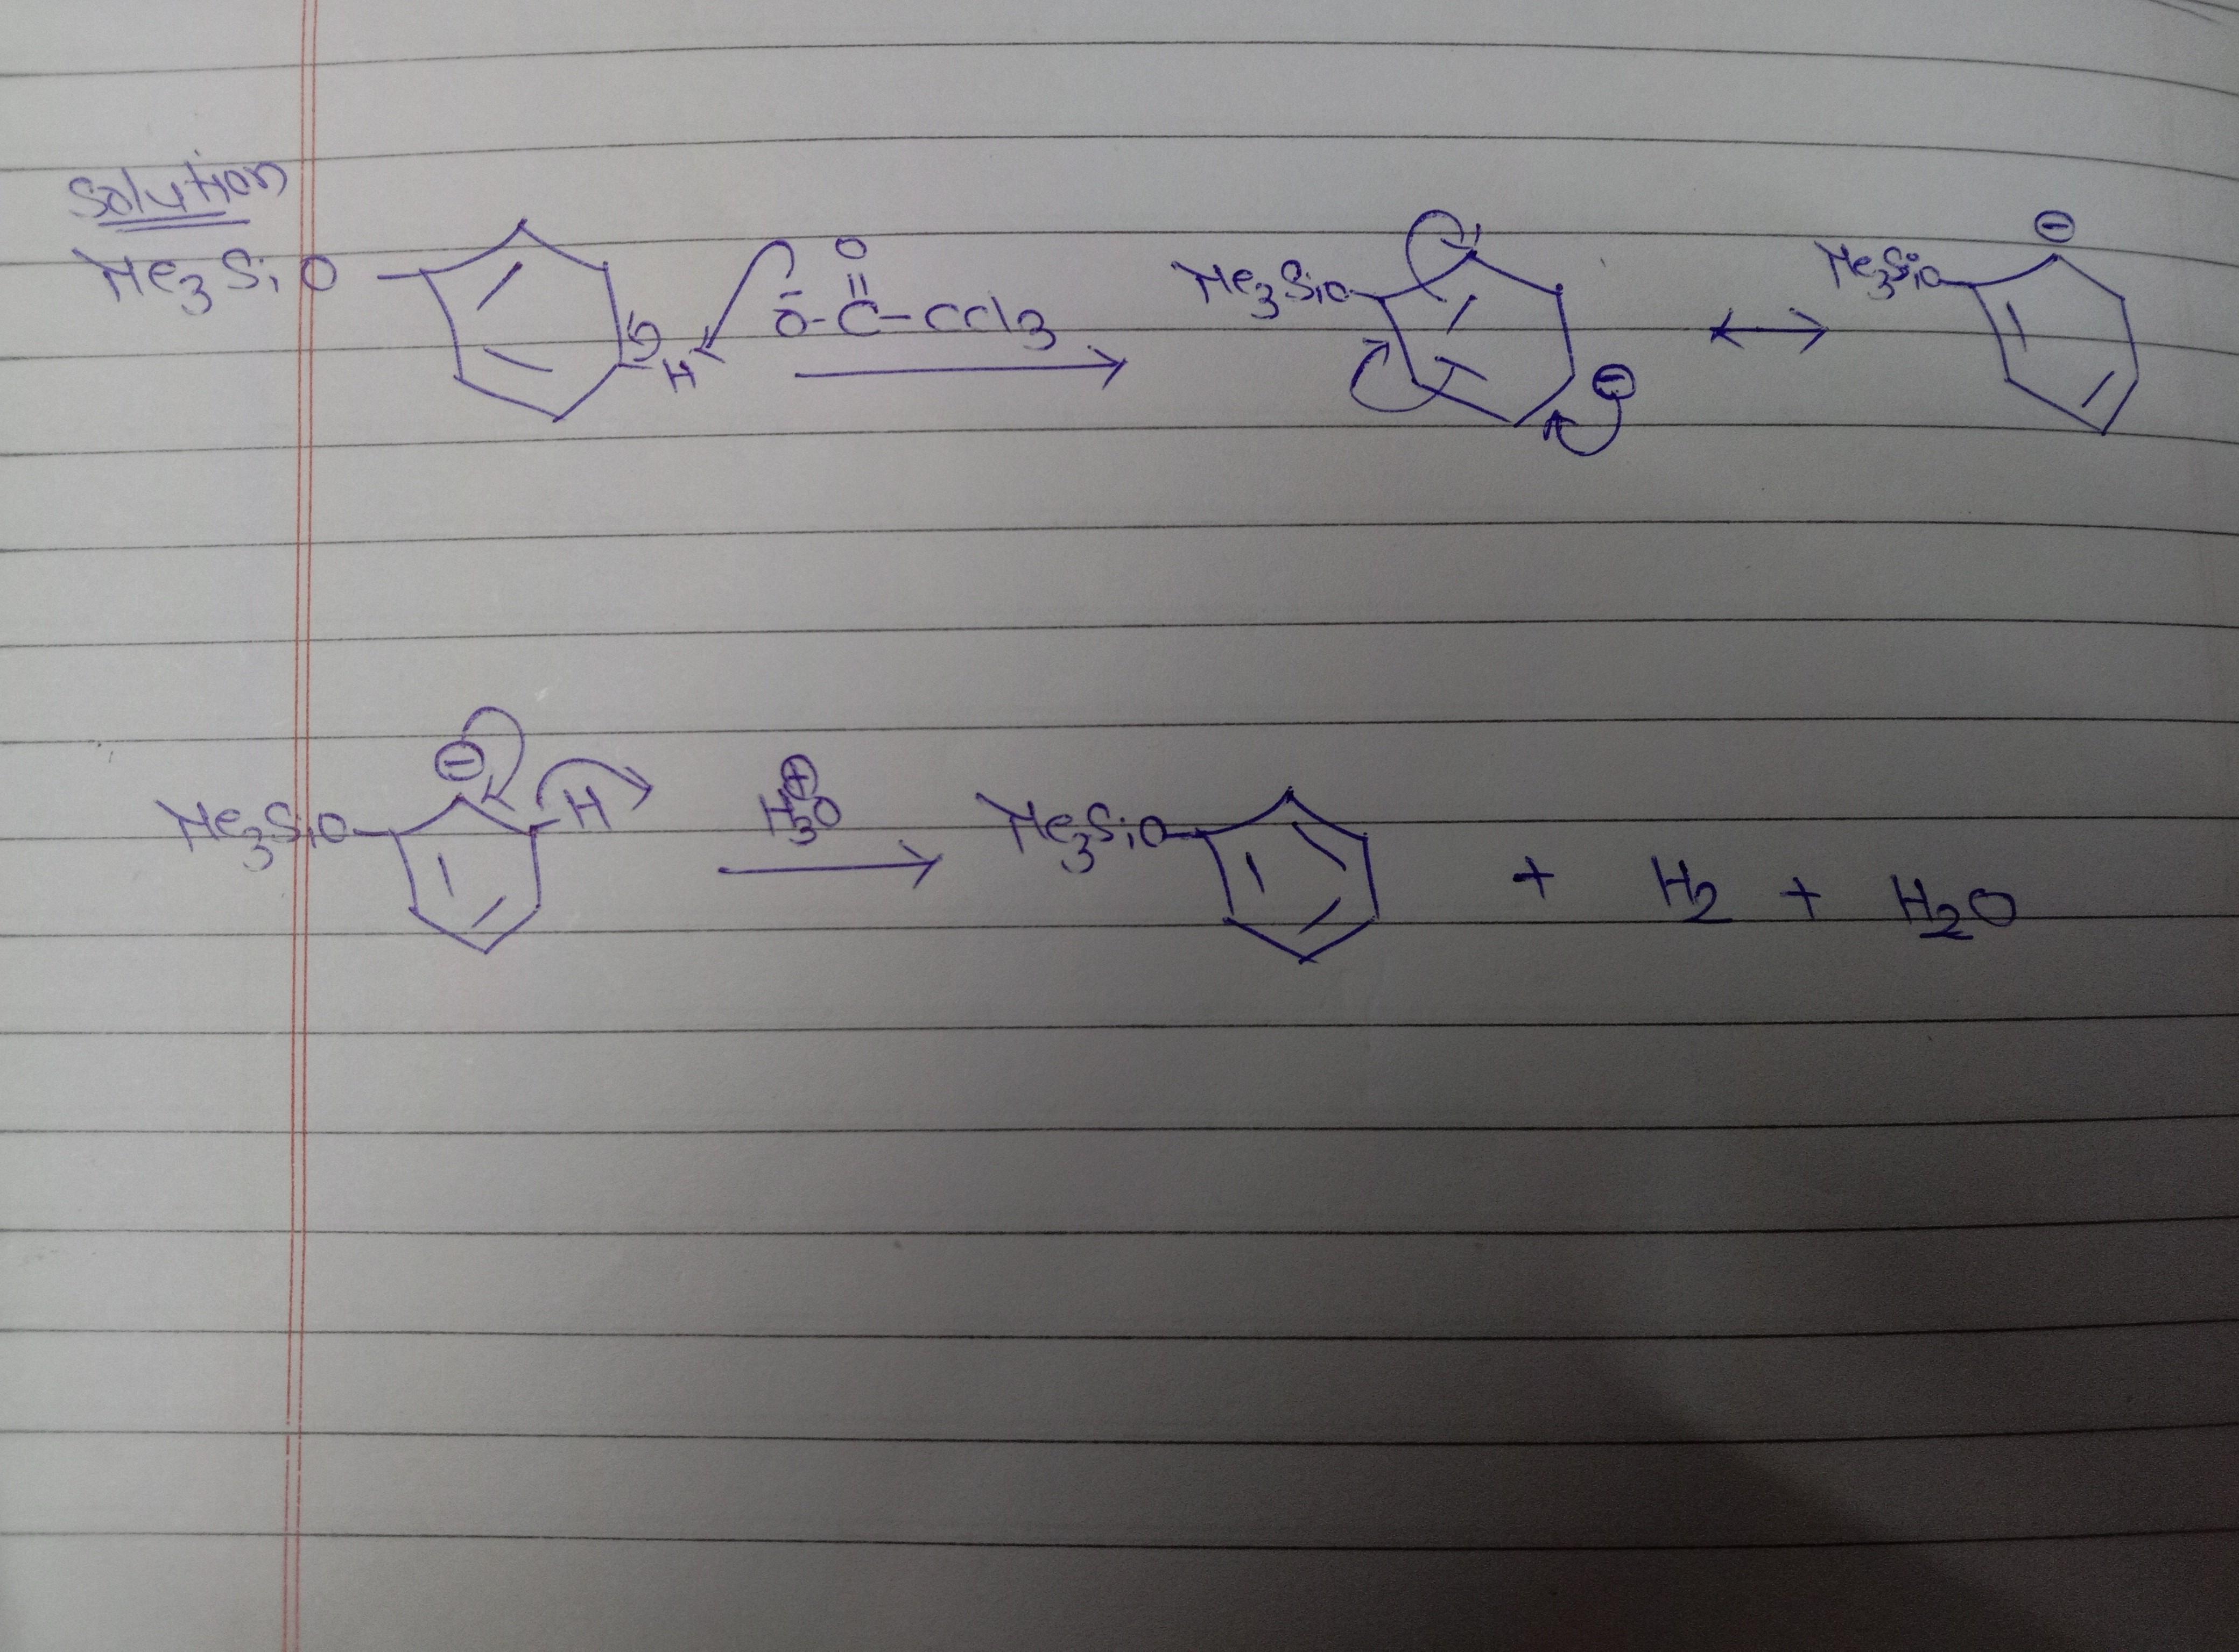 Solution
Me3SiO H O-C-CCl3 Me3SiO ⊖ ↔ Me3SiO ⊖
O
Me3SiO ⊖ H H3O⊕ → Me3SiO + H2 + H2O